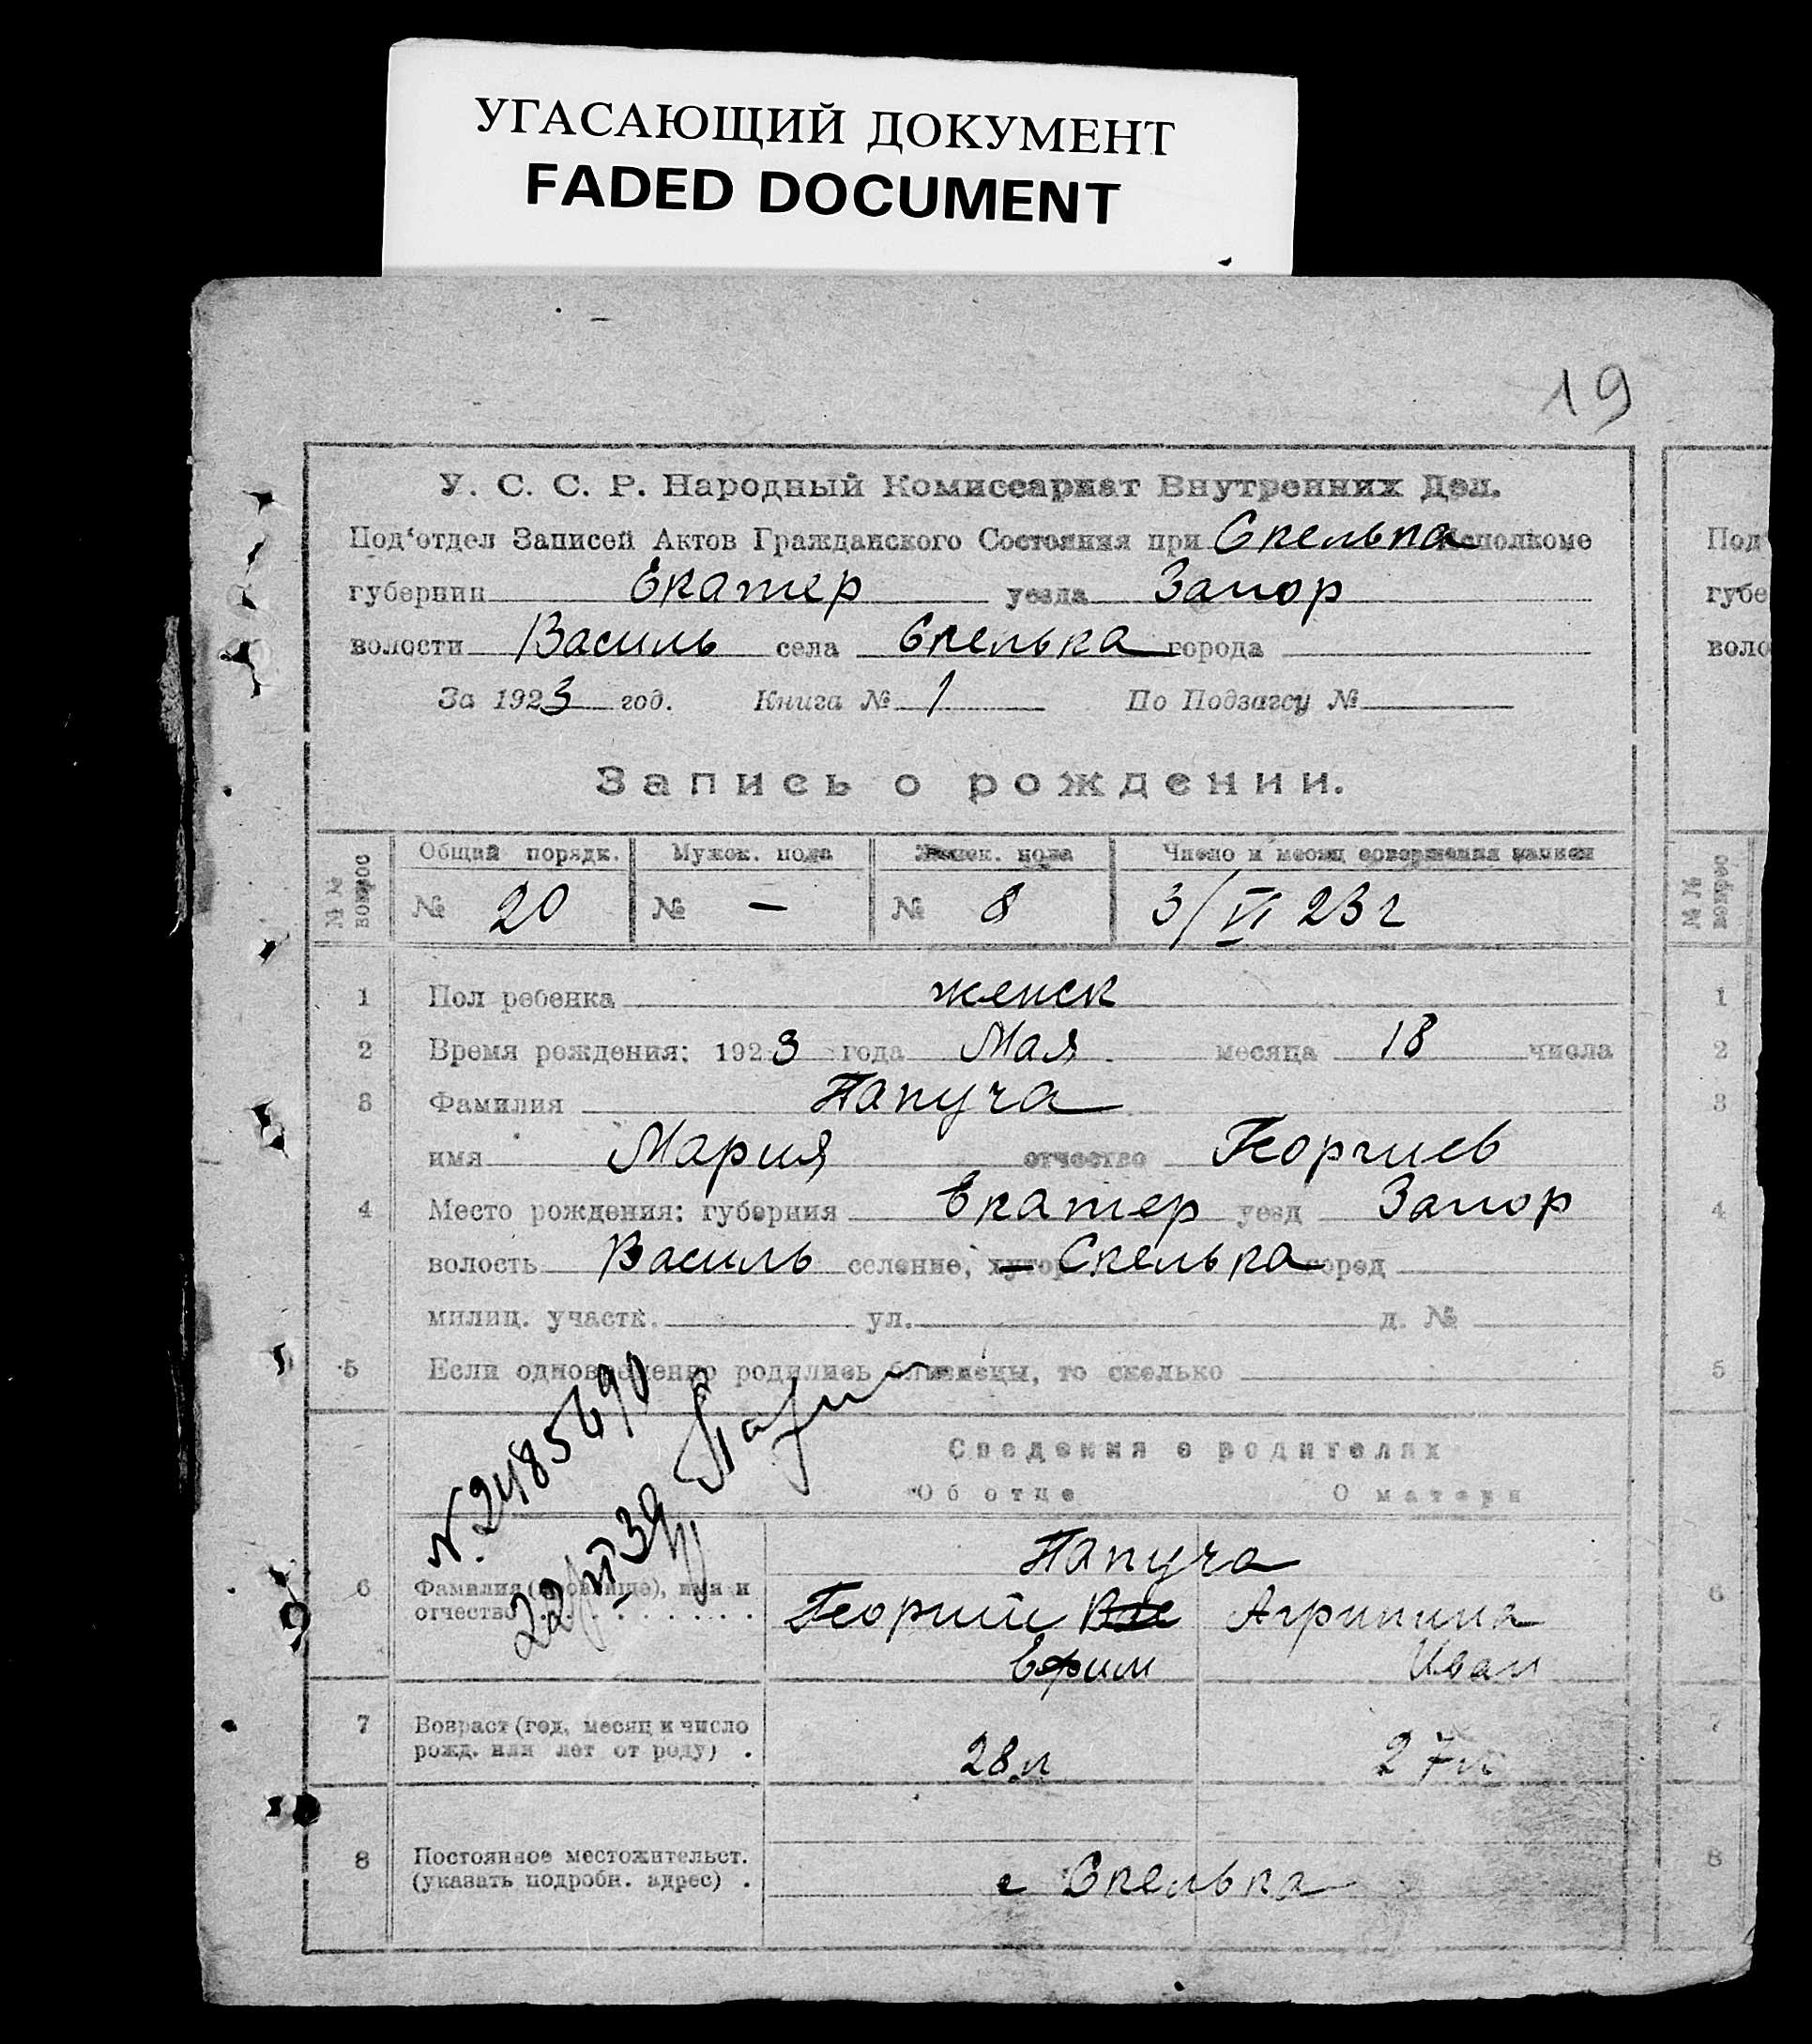 УГАСАЮЩИЙ ДОКУМЕНТ
FADED DOCUMENT
19
У. С. С. Р. Народный Комиссариат Внутренних Дел.
Под'отдел Записей Актов Гражданского Состояния при Скелька Исполкоме
губернии Екатер уезда Запор
волости Василь села Скелька города
За 1923 год. Книга № 1 По Подзагсу №
Запись о рождении.
№ № вопрос Общий порядк. Мужск. пола Женск. пола Число и месяц совершения записи
№ 20 № — № 8 3/VI 23 г
1 Пол ребенка женск
2 Время рождения: 1923 года Мая месяца 18 числа
3 Фамилия Папуча
имя Мария отчество Георгиев
4 Место рождения: губерния Екатер уезд Запор
волость Василь селение, хутор Скелька город
милиц. участк. ул. д. №
5 Если одновременно родились близнецы, то сколько
Сведения о родителях
Об отце О матери
N. 2485690
22/VI 39
Папуча
6 Фамилия (прозвище), имя и
отчество Георгий Агрипина
Ефим Иван
7 Возраст (год, месяц и число
рожд. или лет от роду) . 28 л 27 л
8 Постоянное местожительст.
(указать подробн. адрес) . с Скелька
Под'
губе
воло
№ № вопрос
1
2
3
4
5
6
7
8